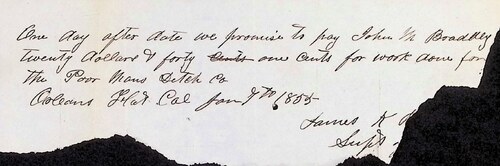 One day after date we promise to pay John M Bradley
twenty dollars & forty cents one cents for work done for
the Poor Mans Ditch Co
Orleans Flat Cal Jan 9th 1855
James K
Supt